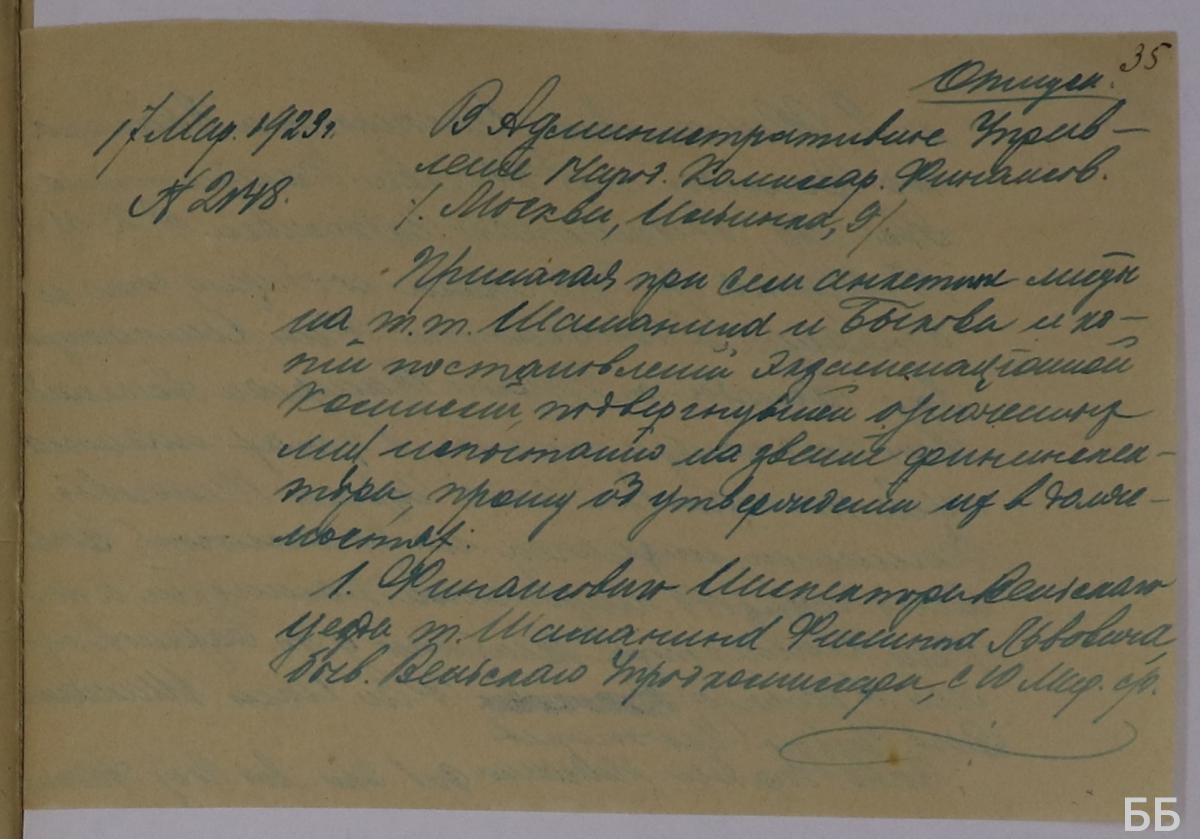 35
Отпуск.
17 Мар. 1923 г.
№ 2148.
В Административное Управ-
ление Народ. Комиссар. Финансов.
/. Москва, Ильинка, 9/
Прилагая при сем анкетные листы
на т.т. Шаманина и Быкова и ко-
пии постановлений Экзаменационной
Комиссии, подвергнувшей означенных
лиц испытанию на звание фининспек-
тора, прошу об утверждении их в долж-
ностях:
1. Финансового Инспектора Вельского
уезда т. Шаманина Филиппа Львовича,
быв. Вельского Упродкомиссара, с 10 Мар. с/г.
ББ